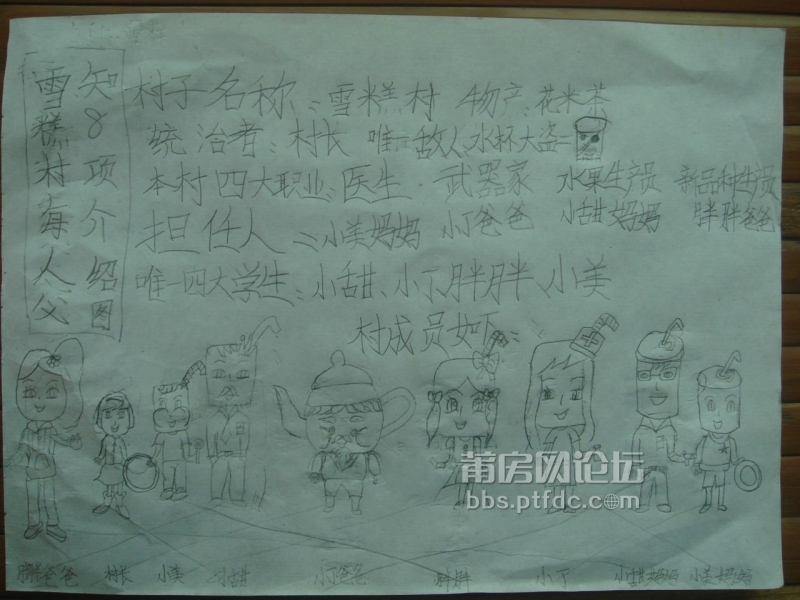 雪糕村每人父
知8项介绍图
村子名称：雪糕村 物产：花米茶
统治者：村长 唯一敌人：水杯大盗
本村四大职业：医生 武器家 水果生产员 新品种生产员
担任人：小美妈妈 小丁爸爸 小甜妈妈 胖胖爸爸
唯一四大学生：小甜、小丁、胖胖、小美
村成员如下：
胖胖爸爸 村长 小美 小甜 小丁爸爸 胖胖 小丁 小甜妈妈 小美妈妈
莆房网论坛
bbs.ptfdc.com